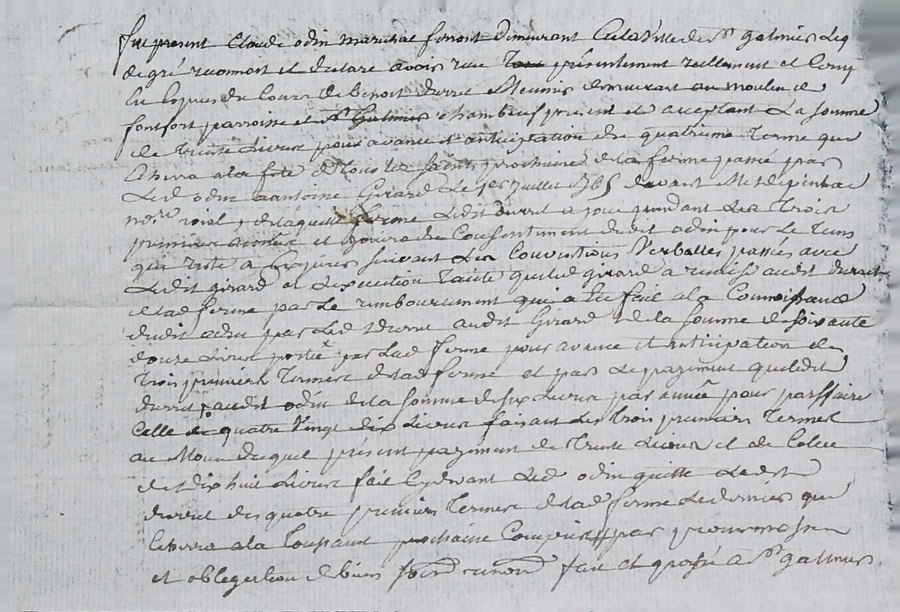 fut present Claude odin marechal ferrant demeurant En la Ville de St galmier Leq
de gré reconnoit et declare avoir reçu presentement reellement et Comp
En Especes du Cours de benoit durret Meunier demeurant au moulin de
fontfort parroisse de St Galmier chambeuf present et acceptant La somme
de trente Livres pour avance et anticipation du quatrieme Terme que
Echerra a la fete de Tous les Saints prochaine de la ferme passée par
Led odin a antoine Girard Le 1er juillet 1765 devant Me depinhac
nore roial, de laquelle ferme Ledit durret a joui pendant Les Trois
premieres années et jouira du Consentement dudit odin pour Le Tems
qui reste a Expirer suivant Les Conventions Verballes passées avec
Ledit girard et qui Led girard a remise audit durret
de lad ferme par Le remboursement qui a Eté fait a la Connoissance
dudit odin par Led durret audit Girard de la somme de soixante
douze Livres portée par Lad ferme pour avance et anticipation des
Trois premiers Termes de lad ferme et par Le payiment que ledit
durret audit odin de la somme de six Livres par année pour parffaire
Celle de quatre Vingt dix Livres faisant Les Trois premiers Termes
au Moien duquel présent payiment de trente Livres et de Celui
de dix huit Livres fait Cydevant Led odin quitte Ledit
durret des quatre premiers Termes de lad ferme Le dernier que
Echerra a la Toussaint prochaine Compris par promesse
et obligation de biens fait et passé a St galmier